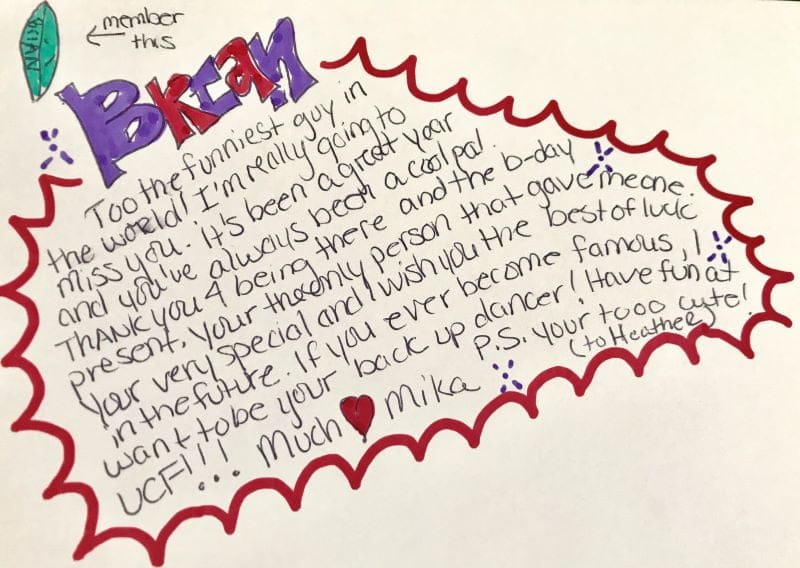 BRIAN
member
this
BRIan
Too the funniest guy in
the world! I'm really going to
miss you. It's been a great year
and you've always been a cool pal.
THANK you 4 being there and the b-day
present. Your the only person that gave me one.
Your very special and I wish you the best of luck
in the future. If you ever become famous, I
want to be your back up dancer! Have fun at
UCF!!! ... Much ♥ Mika
P.S. Your tooo cute!
(to Heather)